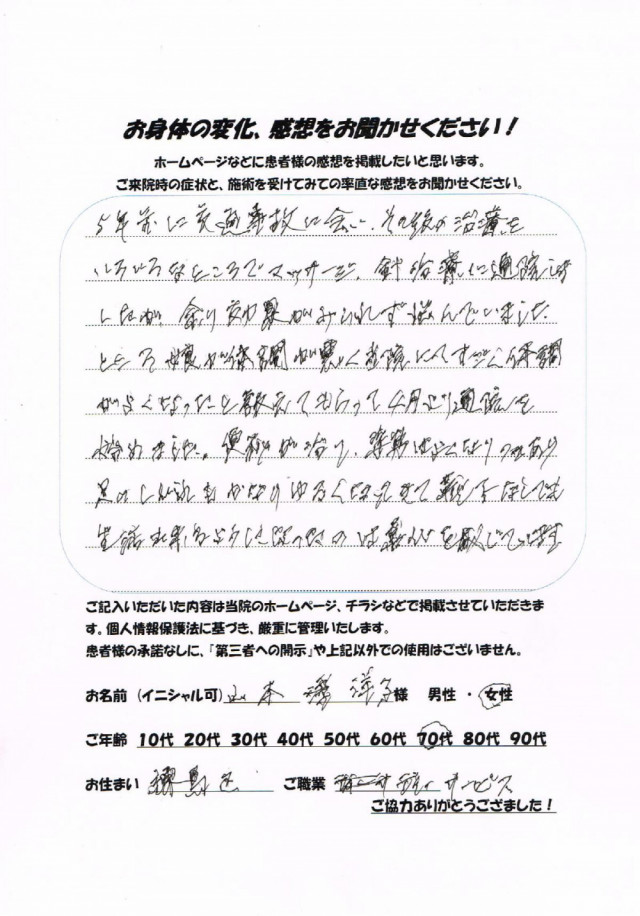 お身体の変化、感想をお聞かせください！
ホームページなどに患者様の感想を掲載したいと思います。
ご来院時の症状と、施術を受けてみての率直な感想をお聞かせください。
5年前に交通事故に会い、その後の治療を
いろいろなところでマッサージ、針治療に通院しま
したが、余り効果がみられず悩んでいました
ところ 体調が悪く 当院にて すごく体調
がよくなったと教えてもらって4月より通院を
始めました。便秘が治り、
足のしびれもかなりゆるくなってきて
生活出来るようになったのは を感じています
ご記入いただいた内容は当院のホームページ、チラシなどで掲載させていただきま
す。個人情報保護法に基づき、厳重に管理いたします。
患者様の承諾なしに、「第三者への開示」や上記以外での使用はございません。
お名前（イニシャル可）山本 洋子様 男性 ・ 女性
ご年齢 10代 20代 30代 40代 50代 60代 70代 80代 90代
お住まい 練馬区 ご職業 サービス
ご協力ありがとうござました！